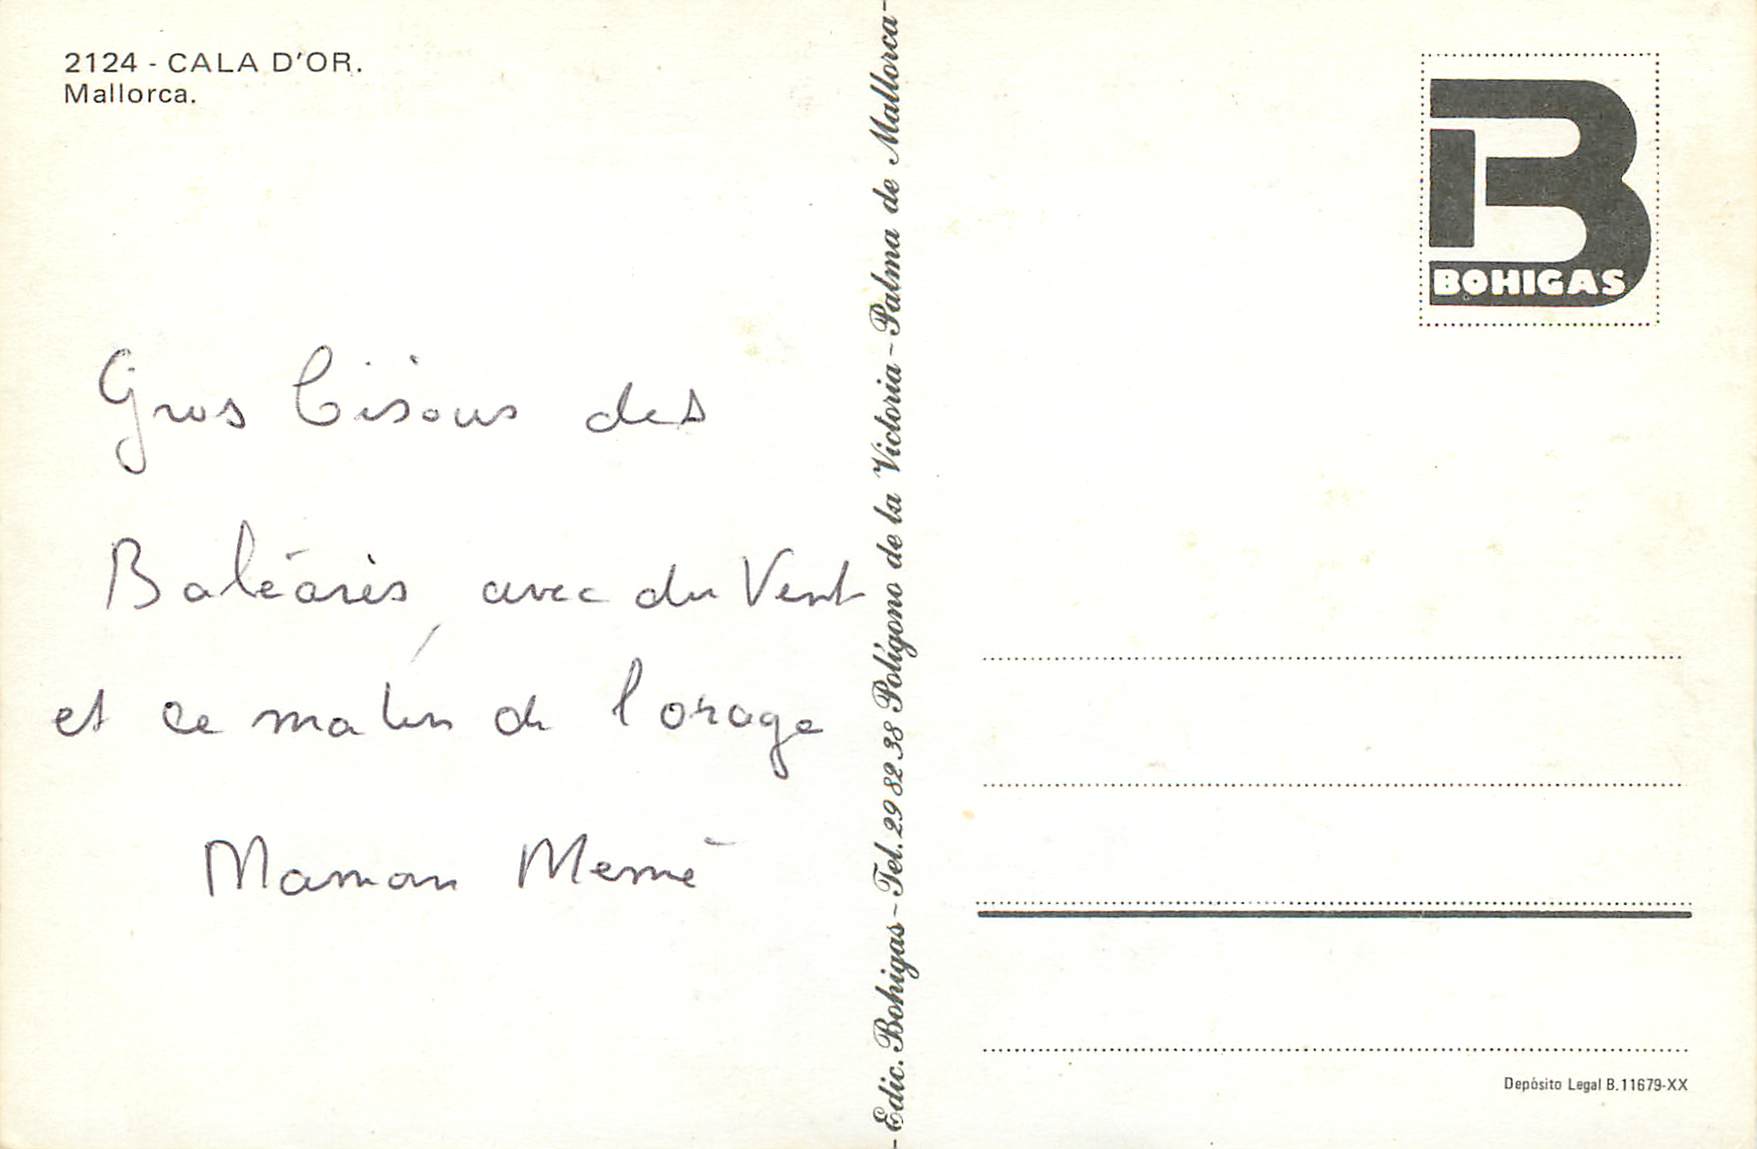 2124 - CALA D'OR.
Mallorca.
BOHIGAS
Gros bisous des
Baléares, avec du Vent
et ce matin de l'orage
Maman Mémé
-Edic. Bohigas - Tel. 29 82 38 Polígono de la Victoria - Palma de Mallorca-
Depósito Legal B.11679-XX